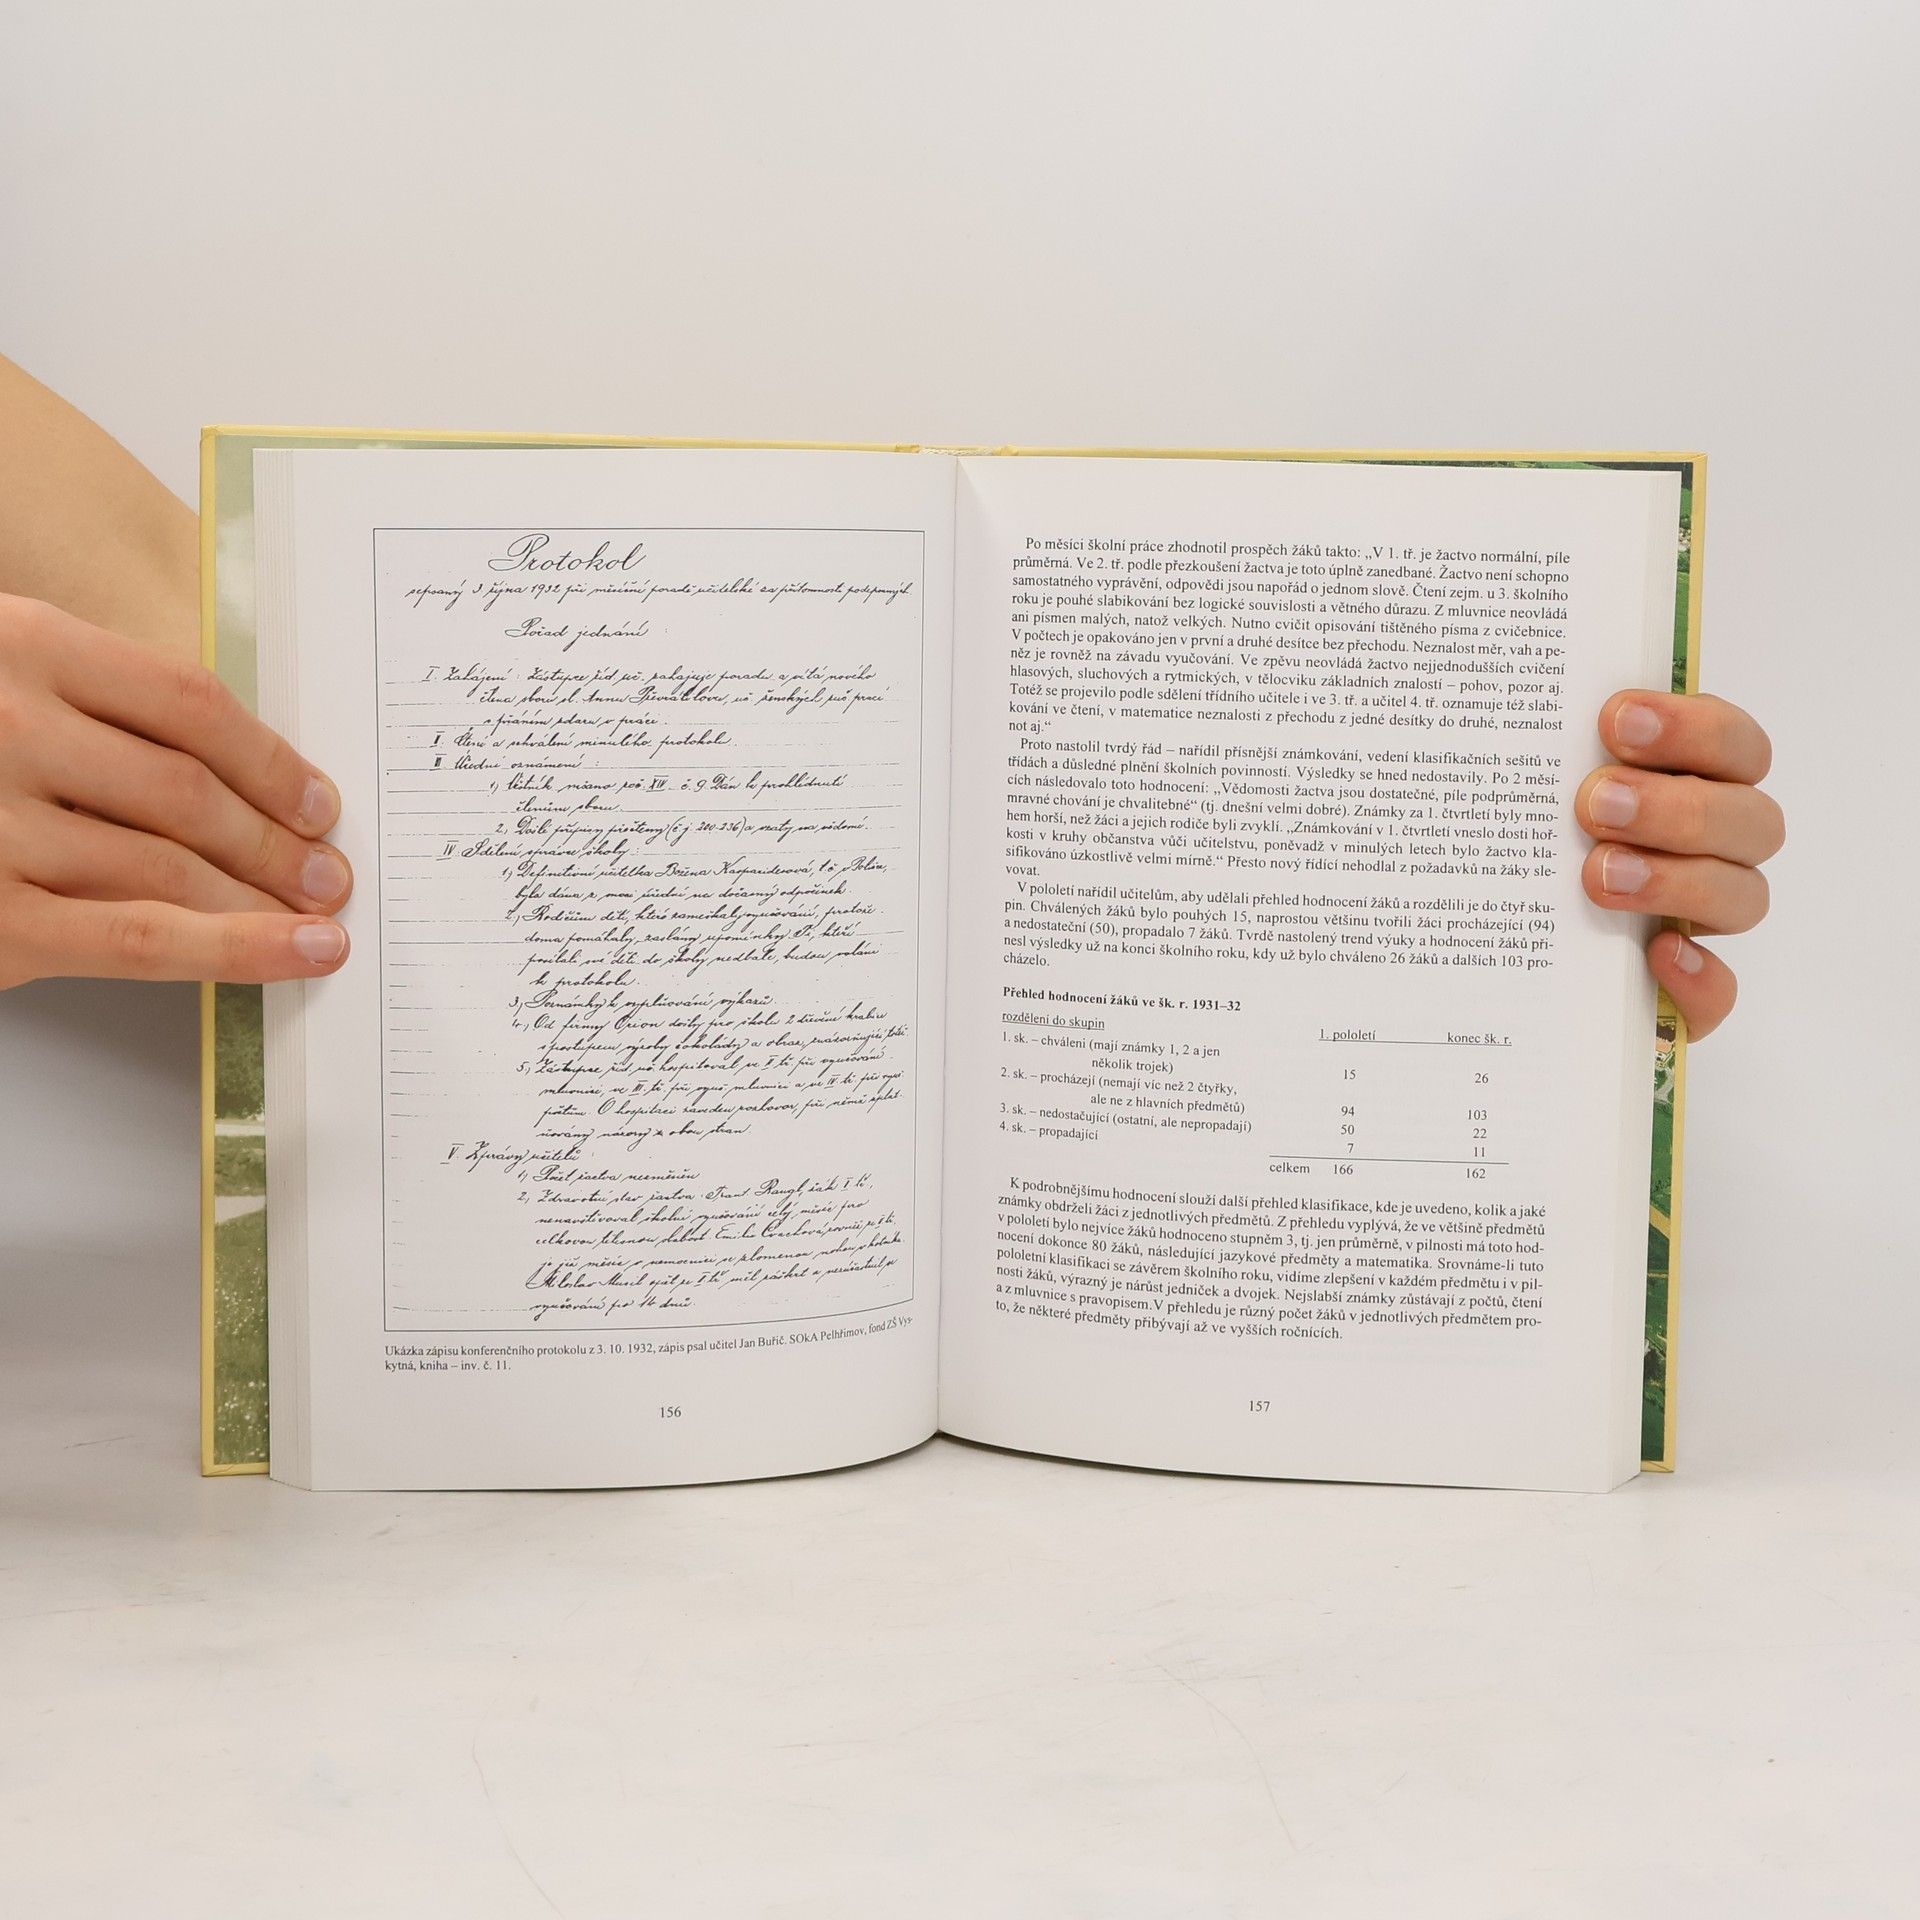 Protokol
sepsaný 3. října 1932 při měsíční poradě učitelské za přítomnosti podepsaných.
Pořad jednání :
I. Zahájení : Zástupce říd. uč. zahajuje poradu a vítá nového
člena sboru sl. Annu Převrátilovu, uč. ženských ruč. prací
s přáním zdaru v práci.
II. Čtení a schválení minulého protokolu.
III. Úřední oznámení :
1) Věstník, roč. XIV. č. 9. Dán k prohlédnutí
členům sboru.
2) Došlé přípisy přečteny (č. j. 200-236) a vzaty na vědomí.
IV. Sdělení správce školy :
1) Definitivní učitelka Božena t. č. v
byla dána z moci úřední na dočasný odpočinek.
2) Rodičům dětí, které zameškaly vyučování, protože
doma pomáhaly, zaslány upomínky. Ti, kteří
posílati své děti do školy nedbale, budou voláni
k protokolu.
3) Poznámky k vyplňování výkazů.
4) Od firmy Orion došly pro školu 2 dřevěné krabice
s postupem výroby čokolády a obraz, znázorňující
5) Zástupce říd. uč. hospitoval ve II. tř. při vyučování
mluvnici, ve III. tř. při vyuč. mluvnici a ve IV. tř. při vyuč.
počtům. O hospitaci zaveden rozhovor, při němž
názory z obou stran.
V. Zprávy učitelů :
1) Počet žactva nezměněn
2) Zdravotní stav žactva : Frant. Rangl, žák I. tř.,
nenavštěvoval školní vyučování celý měsíc pro
celkovou tělesnou slabost. Emilie Cvachová, rovněž z I. tř.
je již měsíc v nemocnici se zlomenou nohou v kotníku.
Miloslav Musil opět ze I. tř. měl a nezúčastnil se
vyučování po 14 dnů.
Ukázka zápisu konferenčního protokolu z 3. 10. 1932, zápis psal učitel Jan Buřič. SOkA Pelhřimov, fond ZŠ Vys-
kytná, kniha – inv. č. 11.
156
Po měsíci školní práce zhodnotil prospěch žáků takto: „V 1. tř. je žactvo normální, píle
průměrná. Ve 2. tř. podle přezkoušení žactva je toto úplně zanedbané. Žactvo není schopno
samostatného vyprávění, odpovědi jsou napořád o jednom slově. Čtení zejm. u 3. školního
roku je pouhé slabikování bez logické souvislosti a větného důrazu. Z mluvnice neovládá
ani písmen malých, natož velkých. Nutno cvičit opisování tištěného písma z cvičebnice.
V počtech je opakováno jen v první a druhé desítce bez přechodu. Neznalost měr, vah a pe-
něz je rovněž na závadu vyučování. Ve zpěvu neovládá žactvo nejjednodušších cvičení
hlasových, sluchových a rytmických, v tělocviku základních znalostí – pohov, pozor aj.
Totéž se projevilo podle sdělení třídního učitele i ve 3. tř. a učitel 4. tř. oznamuje též slabi-
kování ve čtení, v matematice neznalosti z přechodu z jedné desítky do druhé, neznalost
not aj.“
Proto nastolil tvrdý řád – nařídil přísnější známkování, vedení klasifikačních sešitů ve
třídách a důsledné plnění školních povinností. Výsledky se hned nedostavily. Po 2 měsí-
cích následovalo toto hodnocení: „Vědomosti žactva jsou dostatečné, píle podprůměrná,
mravné chování je chvalitebné“ (tj. dnešní velmi dobré). Známky za 1. čtvrtletí byly mno-
hem horší, než žáci a jejich rodiče byli zvyklí. „Známkování v 1. čtvrtletí vneslo dosti hoř-
kosti v kruhy občanstva vůči učitelstvu, poněvadž v minulých letech bylo žactvo kla-
sifikováno úzkostlivě velmi mírně.“ Přesto nový řídící nehodlal z požadavků na žáky sle-
vovat.
V pololetí nařídil učitelům, aby udělali přehled hodnocení žáků a rozdělili je do čtyř sku-
pin. Chválených žáků bylo pouhých 15, naprostou většinu tvořili žáci procházející (94)
a nedostateční (50), propadalo 7 žáků. Tvrdě nastolený trend výuky a hodnocení žáků při-
nesl výsledky už na konci školního roku, kdy už bylo chváleno 26 žáků a dalších 103 pro-
cházelo.
Přehled hodnocení žáků ve šk. r. 1931–32
rozdělení do skupin 1. pololetí konec šk. r.
1. sk. – chváleni (mají známky 1, 2 a jen
několik trojek) 15 26
2. sk. – procházejí (nemají víc než 2 čtyřky,
ale ne z hlavních předmětů) 94 103
3. sk. – nedostačující (ostatní, ale nepropadají) 50 22
4. sk. – propadající 7 11
celkem 166 162
K podrobnějšímu hodnocení slouží další přehled klasifikace, kde je uvedeno, kolik a jaké
známky obdrželi žáci z jednotlivých předmětů. Z přehledu vyplývá, že ve většině předmětů
v pololetí bylo nejvíce žáků hodnoceno stupněm 3, tj. jen průměrně, v pilnosti má toto hod-
nocení dokonce 80 žáků, následující jazykové předměty a matematika. Srovnáme-li tuto
pololetní klasifikaci se závěrem školního roku, vidíme zlepšení v každém předmětu i v pil-
nosti žáků, výrazný je nárůst jedniček a dvojek. Nejslabší známky zůstávají z počtů, čtení
a z mluvnice s pravopisem. V přehledu je různý počet žáků v jednotlivých předmětem pro-
to, že některé předměty přibývají až ve vyšších ročnících.
157